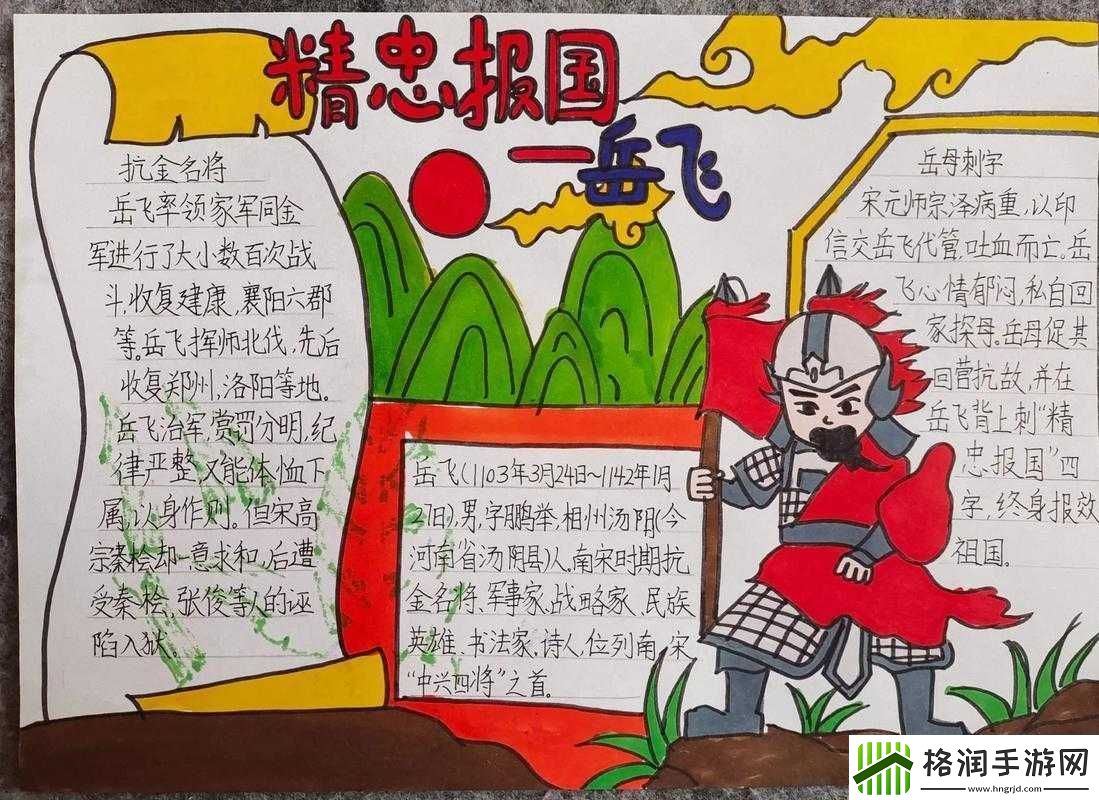 精忠报国
一岳飞
抗金名将
岳飞率领家军同金
军进行了大小数百次战
斗,收复建康,襄阳六郡
等。岳飞挥师北伐,先后
收复郑州,洛阳等地。
岳飞治军,赏罚分明,纪
律严整,又能体恤下
属,以身作则。但宋高
宗秦桧却一意求和,后遭
受秦桧,张俊等人的诬
陷入狱。
岳飞(1103年3月24日~1142年1月
27日),男,字鹏举,相州汤阴(今
河南省汤阴县)人。南宋时期抗
金名将、军事家、战略家、民族
英雄、书法家、诗人,位列南宋
“中兴四将”之首。
岳母刺字
宋元师宗泽病重,以印
信交岳飞代管,吐血而亡。岳
飞心情郁闷,私自回
家探母。岳母促其
回营抗敌,并在
岳飞背上刺“精
忠报国”四
字,终身报效
祖国。
格润手游网
www.hngrjd.com